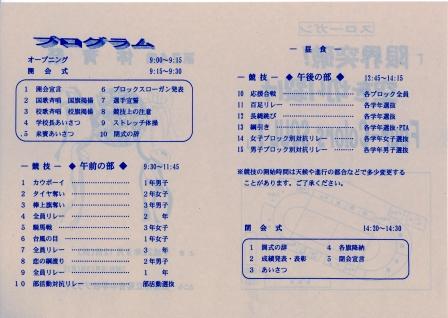 プログラム
オープニング 9:00〜9:15
開会式 9:15〜9:30
1 開会宣言
2 国歌斉唱 国旗掲揚
3 校歌斉唱 校旗掲揚
4 学校長あいさつ
5 来賓あいさつ
6 ブロックスローガン発表
7 選手宣誓
8 競技上の注意
9 ストレッチ体操
10 閉式の辞
― 競技 ― ◆ 午前の部 ◆ 9:30〜11:45
1 カウボーイ 1年男子
2 タイヤ奪い 2年女子
3 棒上旗奪い 3年男子
4 全員リレー 2年
5 騎馬戦 3年女子
6 台風の目 1年女子
7 全員リレー 3年
8 恋の綱渡り 2年男子
9 全員リレー 1年
10 部活動対抗リレー 部活動選抜
― 昼食 ―
― 競技 ― ◆ 午後の部 ◆ 12:45〜14:15
10 応援合戦 各ブロック全員
11 百足リレー 各学年選抜
12 長縄跳び 各学年選抜
13 綱引き 各学年選抜・PTA
14 女子ブロック別対抗リレー 各学年女子選抜
15 男子ブロック別対抗リレー 各学年男子選抜
※競技の開始時間は天候や進行の都合などで多少変更する
ことがあります。ご了承ください。
閉会式 14:20〜14:30
1 開式の辞
2 成績発表・表彰
3 あいさつ
4 各旗降納
5 閉会宣言